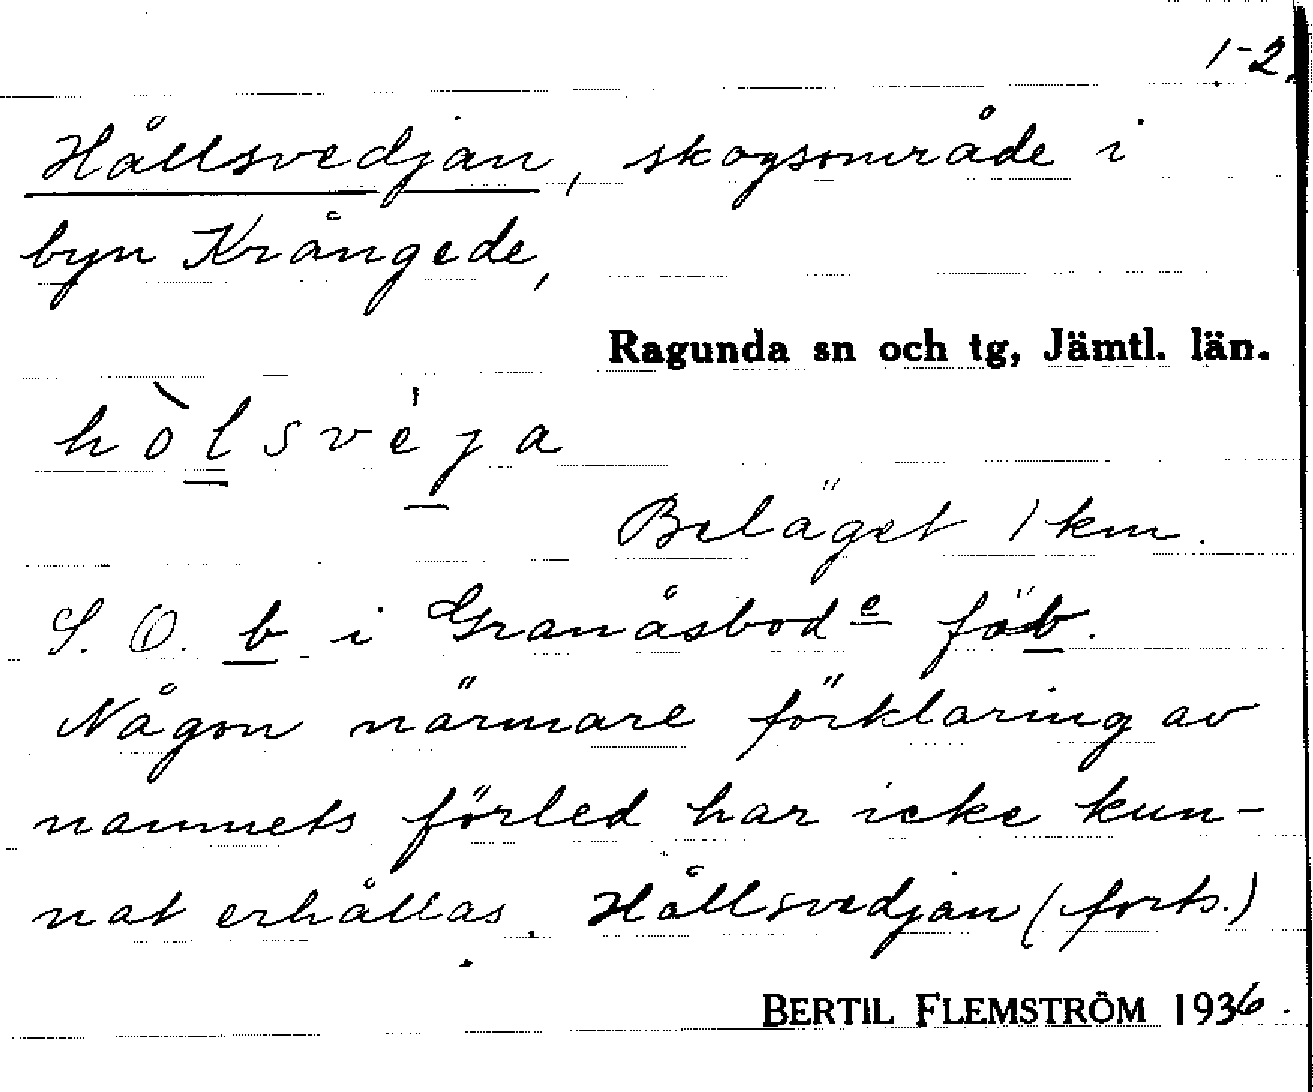 1-2.
Hållsvedjan, skogsområde i
byn Krångede,
Ragunda sn och tg, Jämtl. län.
hòlsve̍ja
Beläget 1 km.
S. O. b i Granåsbode föb.
Någon närmare förklaring av
namnets förled har icke kun-
nat erhållas. Hållsvedjan (forts.)
BERTIL FLEMSTRÖM 1936.